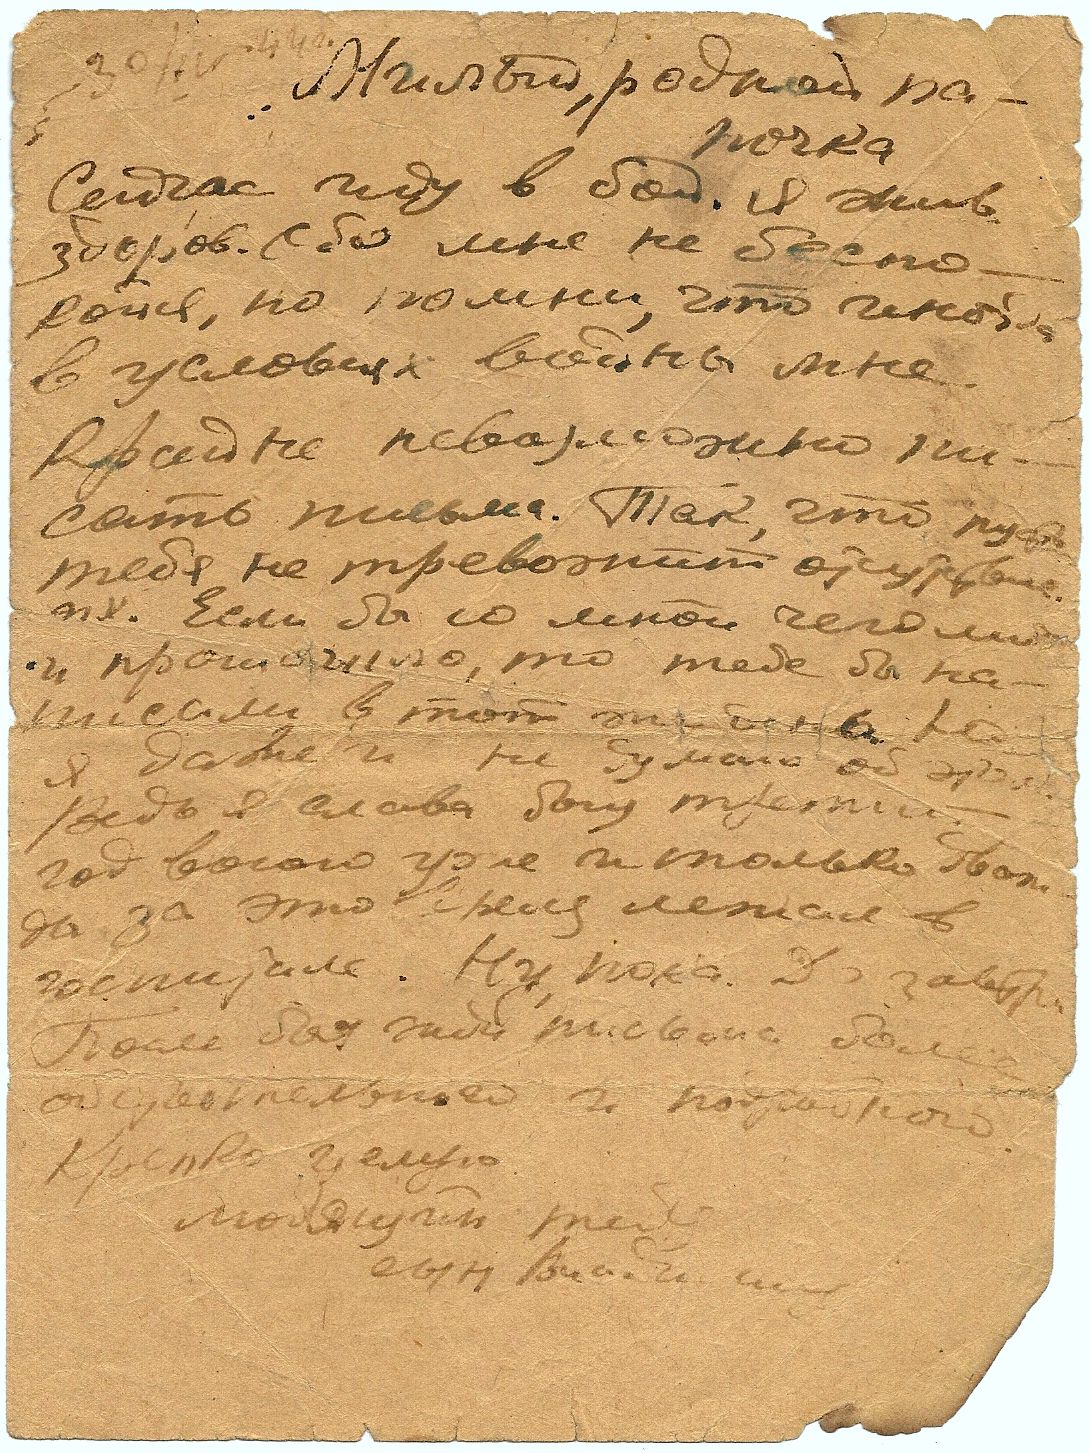 30/IV-44г.
Милый, родной па-
почка
Сейчас иду в бой. Я жив
здоров. Обо мне не беспо-
койся, но помни, что иногда
в условиях войны мне
крайне невозможно пи-
сать письма. Так, что пусть
тебя не тревожит отсутствие
их. Если бы со мной чего либо
и произошло, то тебе бы на-
писали в тот же день. Но
я даже и не думаю об этом.
Ведь я слава богу третий
год воюю уже и только дваж-
ды за это время лежал в
госпитале. Ну, пока. До завтра
После боя жди письма более
обстоятельного и подробного.
Крепко целую
любящий тебя
сын Владимир